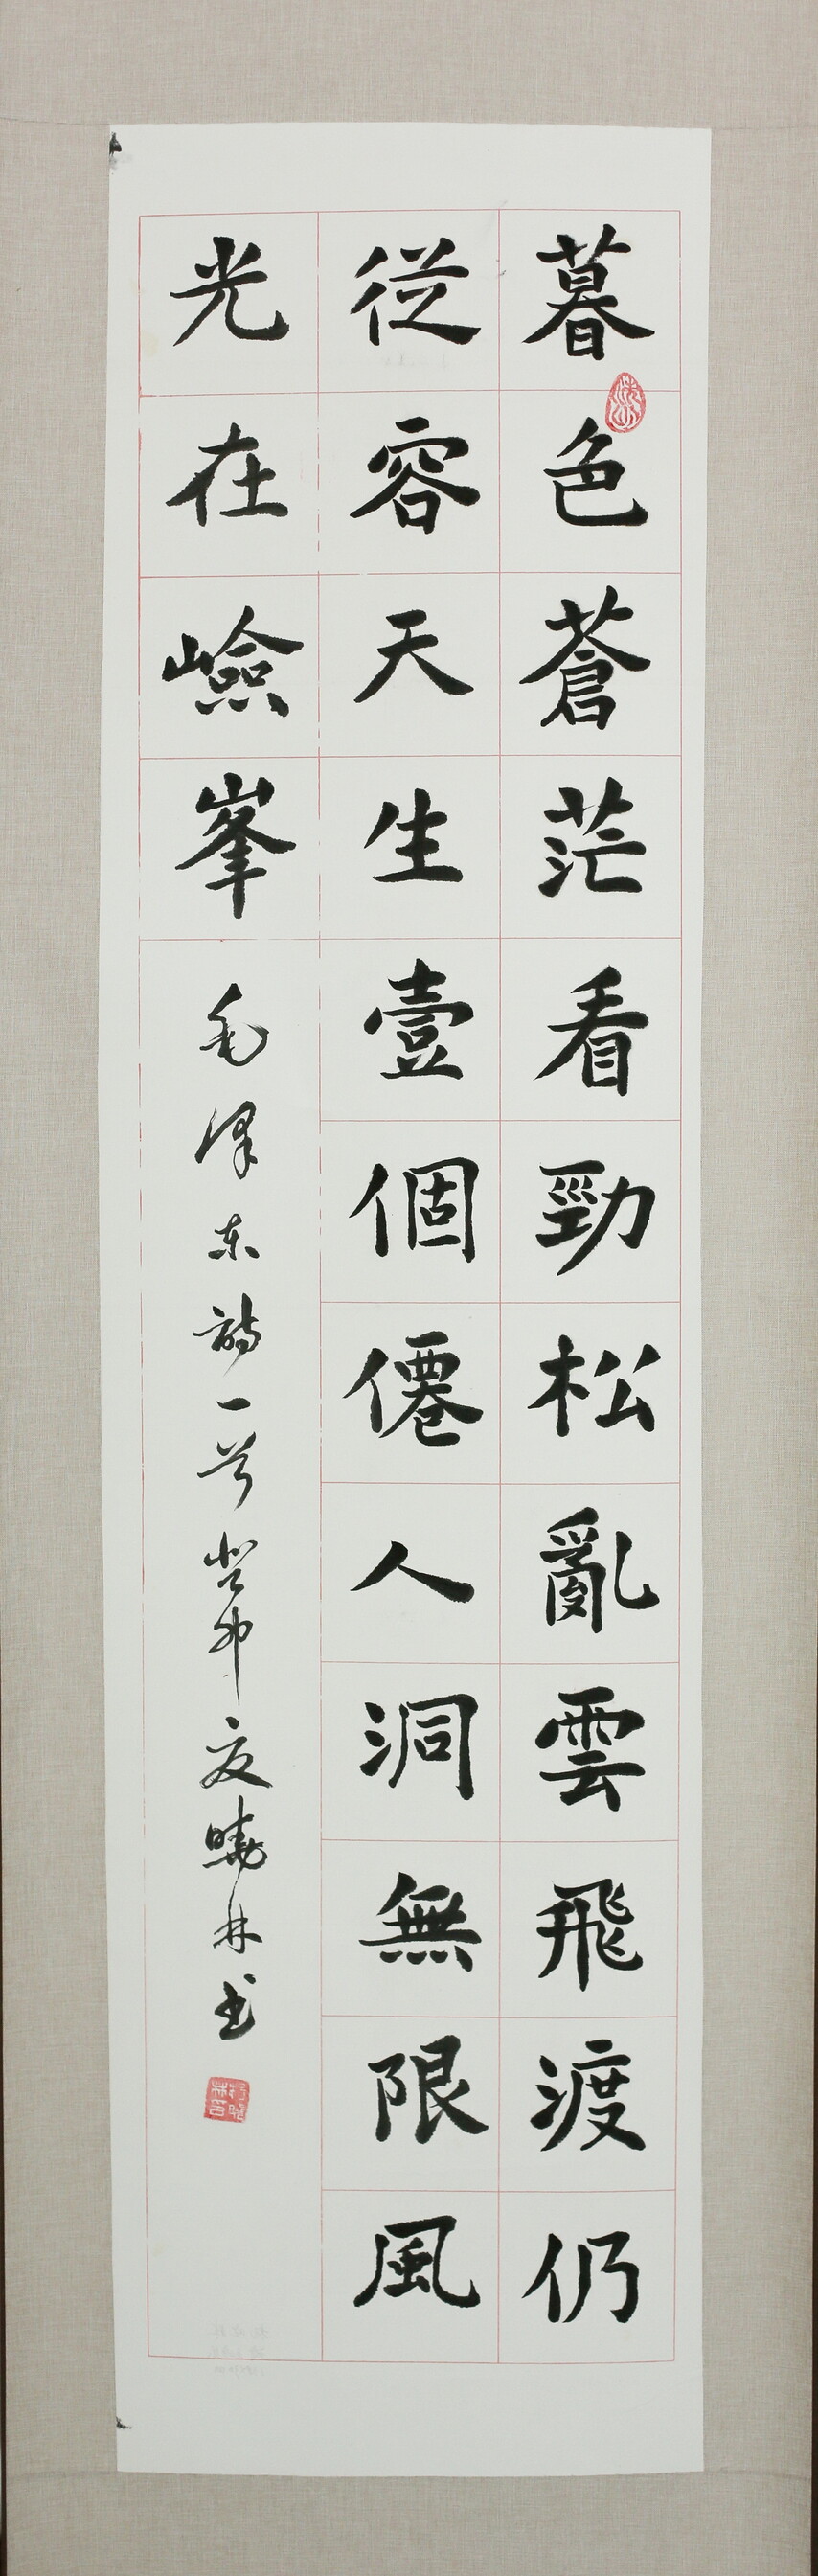 暮色蒼茫看勁松亂雲飛渡仍
從容天生壹個僊人洞無限風
光在嶮峯毛泽东詩一首癸卯夏曉林书